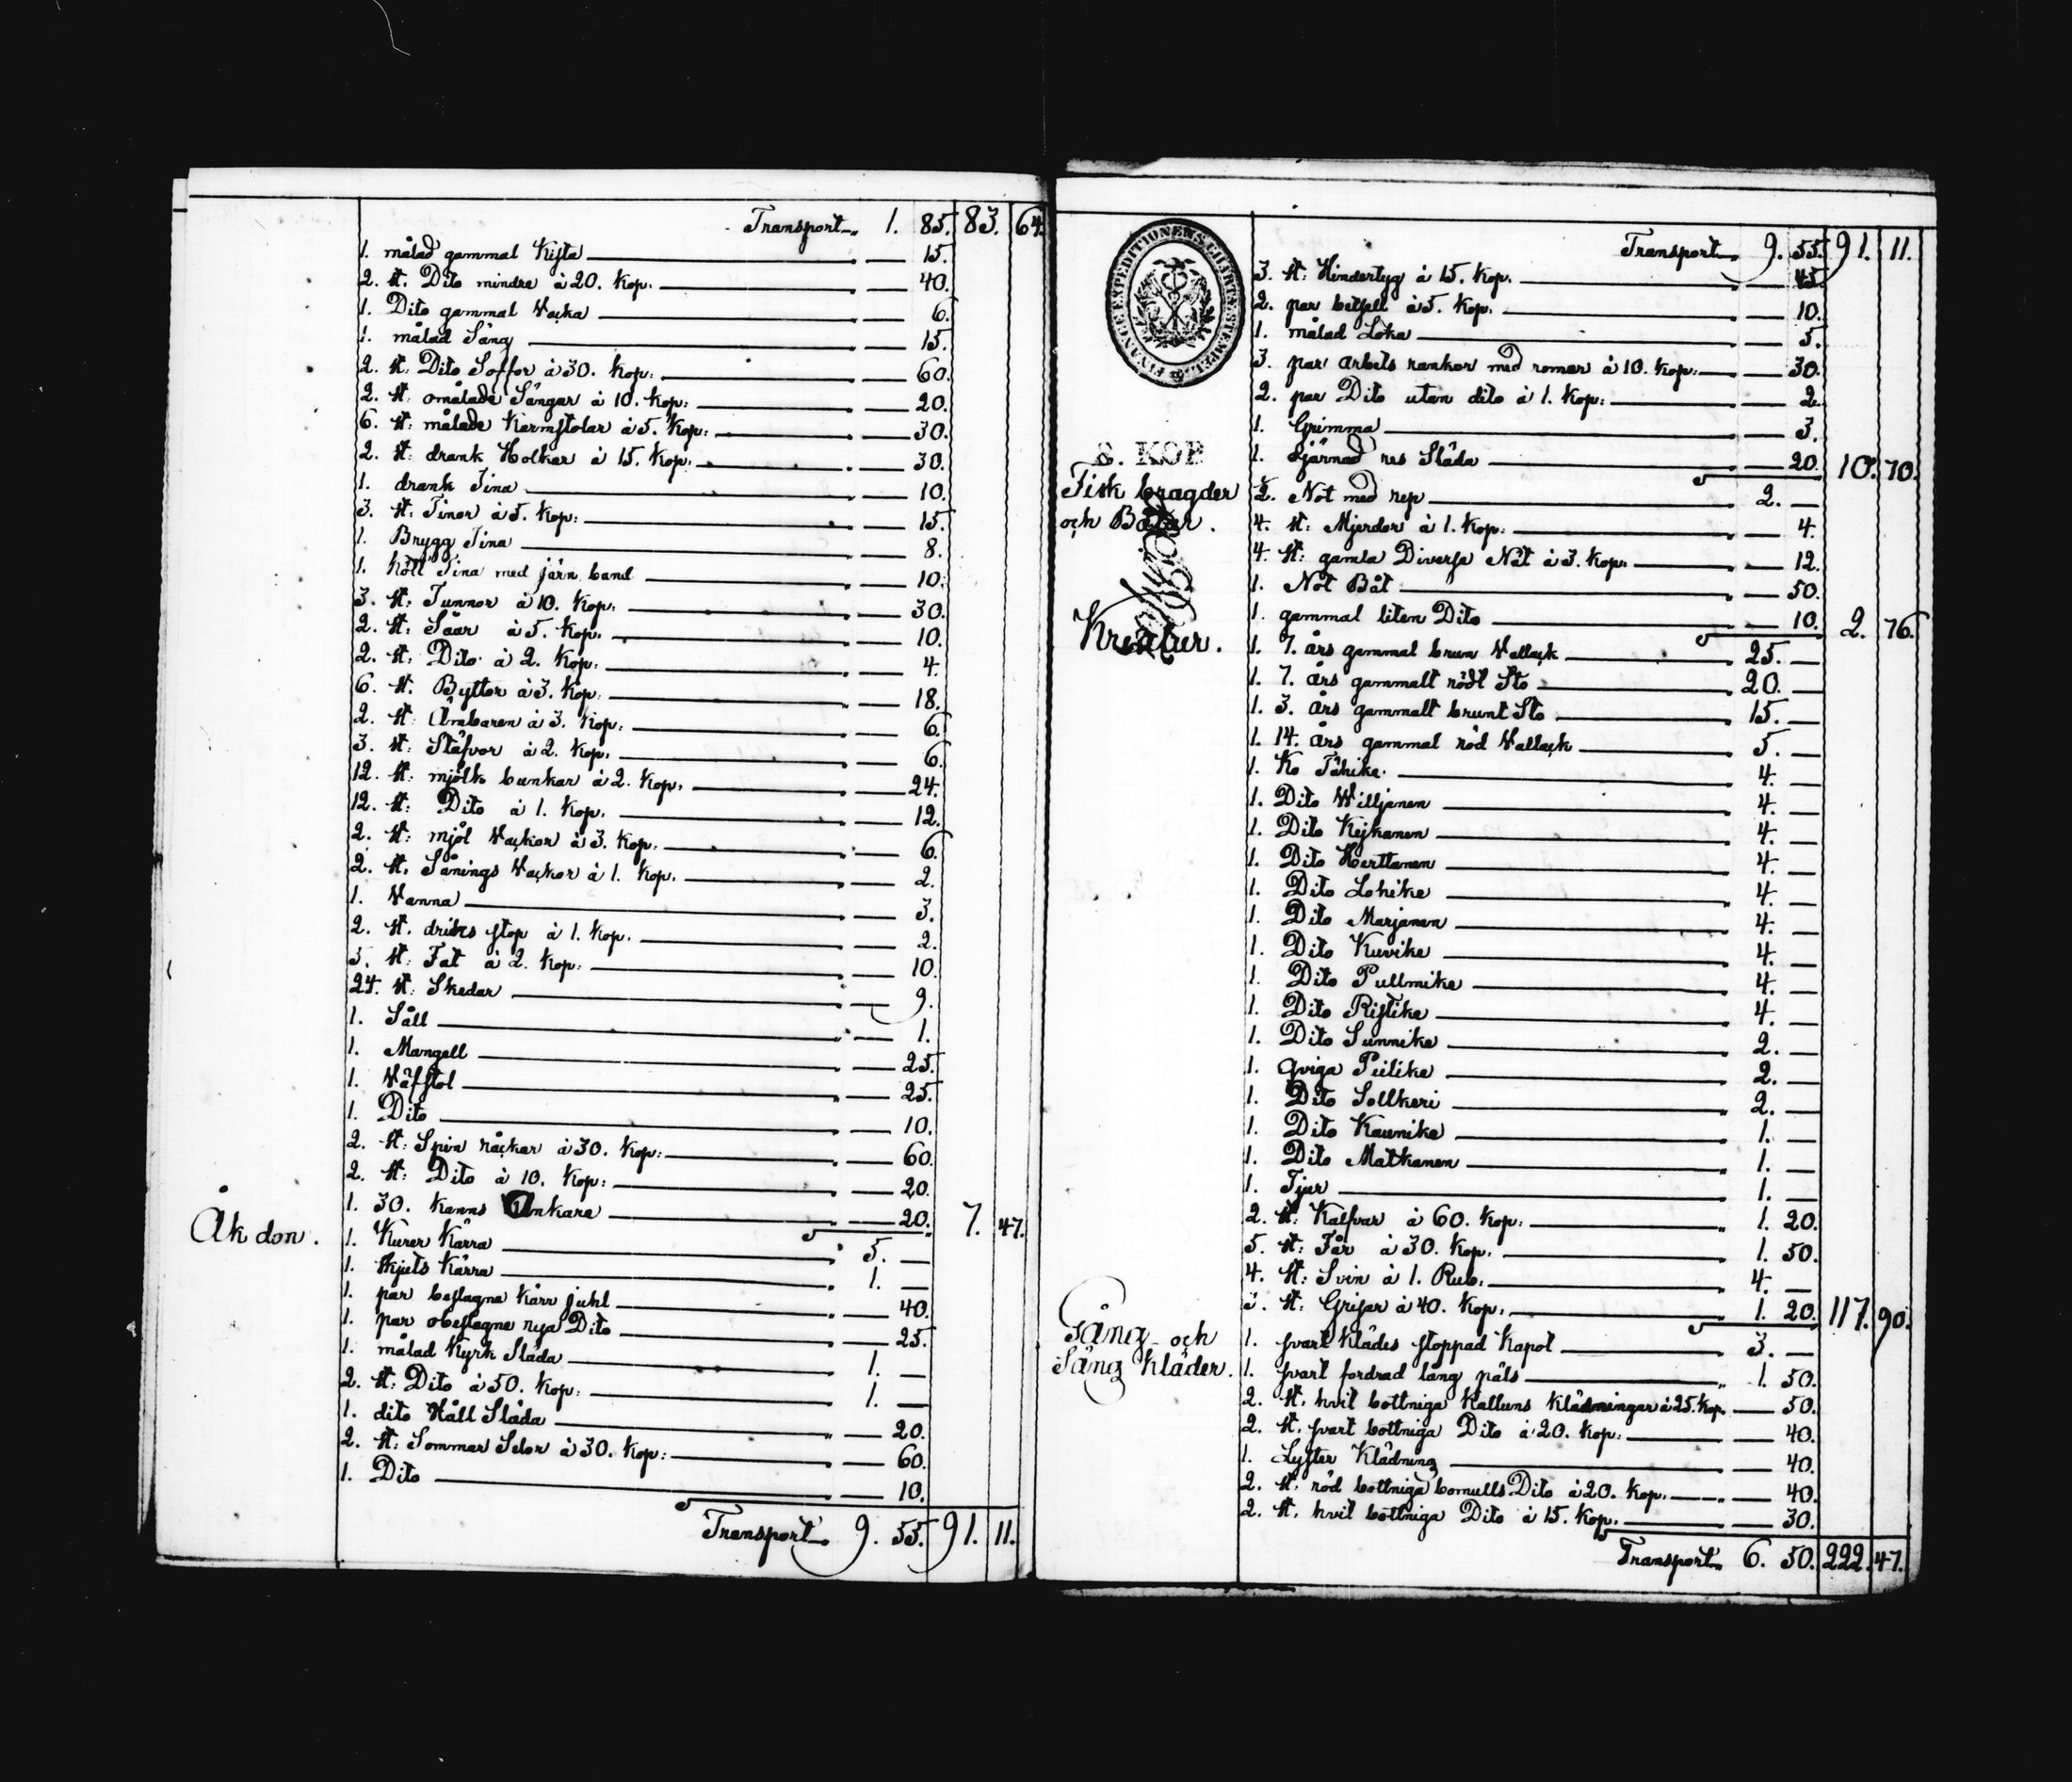 Transport 1. 85. 83. 64.
1. målad gammal Kista 15.
2. st. Dito mindre à 20. Kop. 40.
1. Dito gammal Vacka 6.
1. målad Säng 15.
2. st: Dito Soffor à 30. Kop: 60.
2. st: omålade Sängar à 10. Kop: 20.
6. st: målade Karmstolar à 5. Kop: 30.
2. st: drank Holkar à 15. Kop: 30.
1. drank Tina 10.
3. st: Tinor à 5. Kop: 15.
1. Brygg Tina 8.
1. Kött Tina med järn band 10.
3. st: Tunnor à 10. Kop. 30.
2. st: Såar à 5. Kop. 10.
2. st. Dito à 2. Kop: 4.
6. st. Byttor à 3. Kop: 18.
2. st: Ämbaren à 3. Kop: 6.
3. st: Stäfvor à 2. Kop. 6.
12. st: mjölk bunkar à 2. Kop. 24.
12. st: Dito à 1. Kop. 12.
2. st: mjöl Vackor à 3. Kop. 6.
2. st. Sånings Vackor à 1. Kop. 2.
1. Vanna 3.
2. st. dricks stop à 1. Kop. 2.
5. st: Fat à 2. Kop: 10.
24. st: Skedar 9.
1. Såll 1.
1. Mangell 25.
1. Väfstol 25.
1. Dito 10.
2. st: Spin råckar à 30. Kop: 60.
2. st: Dito à 10. Kop: 20.
1. 30. Kanns Ankare 20. 7. 47.
Åk don. 1. Kurer Kärra 5. —
1. Skjuts Kärra 1. —
1. par beslagne Kärr juhl 40.
1. par obeslagne nya Dito 25.
1. målad Kyrk Släda 1. —
2. st: Dito à 50. Kop: 1. —
1. dito Håll Släda 20.
2. st: Sommar Selor à 30. Kop: 60.
1. Dito 10.
Transport 9. 55. 91. 11.
FINANCE EXPEDITIONENS CHARTÆ STEMPEL.
8. KOP
Transport 9. 55. 91. 11.
3. st: Hindertyg à 15. Kop. 45.
2. par betsell à 5. Kop: 10.
1. målad Loka 5.
3. par arbets rankor med romar à 10. Kop: 30.
2. par Dito utan dito à 1. Kop: 2.
1. Grimma 3.
1. Sjärnad res Släda 20. 10. 70.
Fisk bragder och Båtar. 2. Not med rep 2. —
4. st: Mjerdor à 1. Kop: 4.
4. st: gamla Diverse Nät à 3. Kop: 12.
1. Not Båt 50.
1. gammal liten Dito 10. 2. 76.
Kreatur. 1. 7. års gammal brun Vallack 25. —
1. 7. års gammalt rödt Sto 20. —
1. 3. års gammalt brunt Sto 15. —
1. 14. års gammal röd Vallack 5. —
1. Ko Tähike. 4. —
1. Dito Williänen 4. —
1. Dito Kejkanen 4. —
1. Dito Herttanen 4. —
1. Dito Lohike 4. —
1. Dito Marjanen 4. —
1. Dito Kuvike 4. —
1. Dito Pullmike 4. —
1. Dito Ristike 4. —
1. Dito Sunnike 2. —
1. Qviga Piilike 2. —
1. Dito Sollkeri 2. —
1. Dito Kaunike 1. —
1. Dito Matkanen 1. —
1. Tjur 1. —
2. st: Kalfvar à 60. Kop: 1. 20.
5. st: Får à 30. Kop. 1. 50.
4. st: Svin à 1. Rub. 4. —
3. st: Grisar à 40. Kop. 1. 20. 117. 90.
Gång- och Säng Kläder. 1. svart Klädes stoppad Kapot 3. —
1. svart fordrad lång päls 1. 50.
2. st. hvit bottniga Kattuns Klädningar à 25. Kop. 50.
2. st. svart bottniga Dito à 20. Kop: 40.
1. Lyster Klädning 40.
2. st. röd bottniga bomulls Dito à 20. Kop. 40.
2. st. hvit bottniga Dito à 15. Kop. 30.
Transport 6. 50. 222. 47.